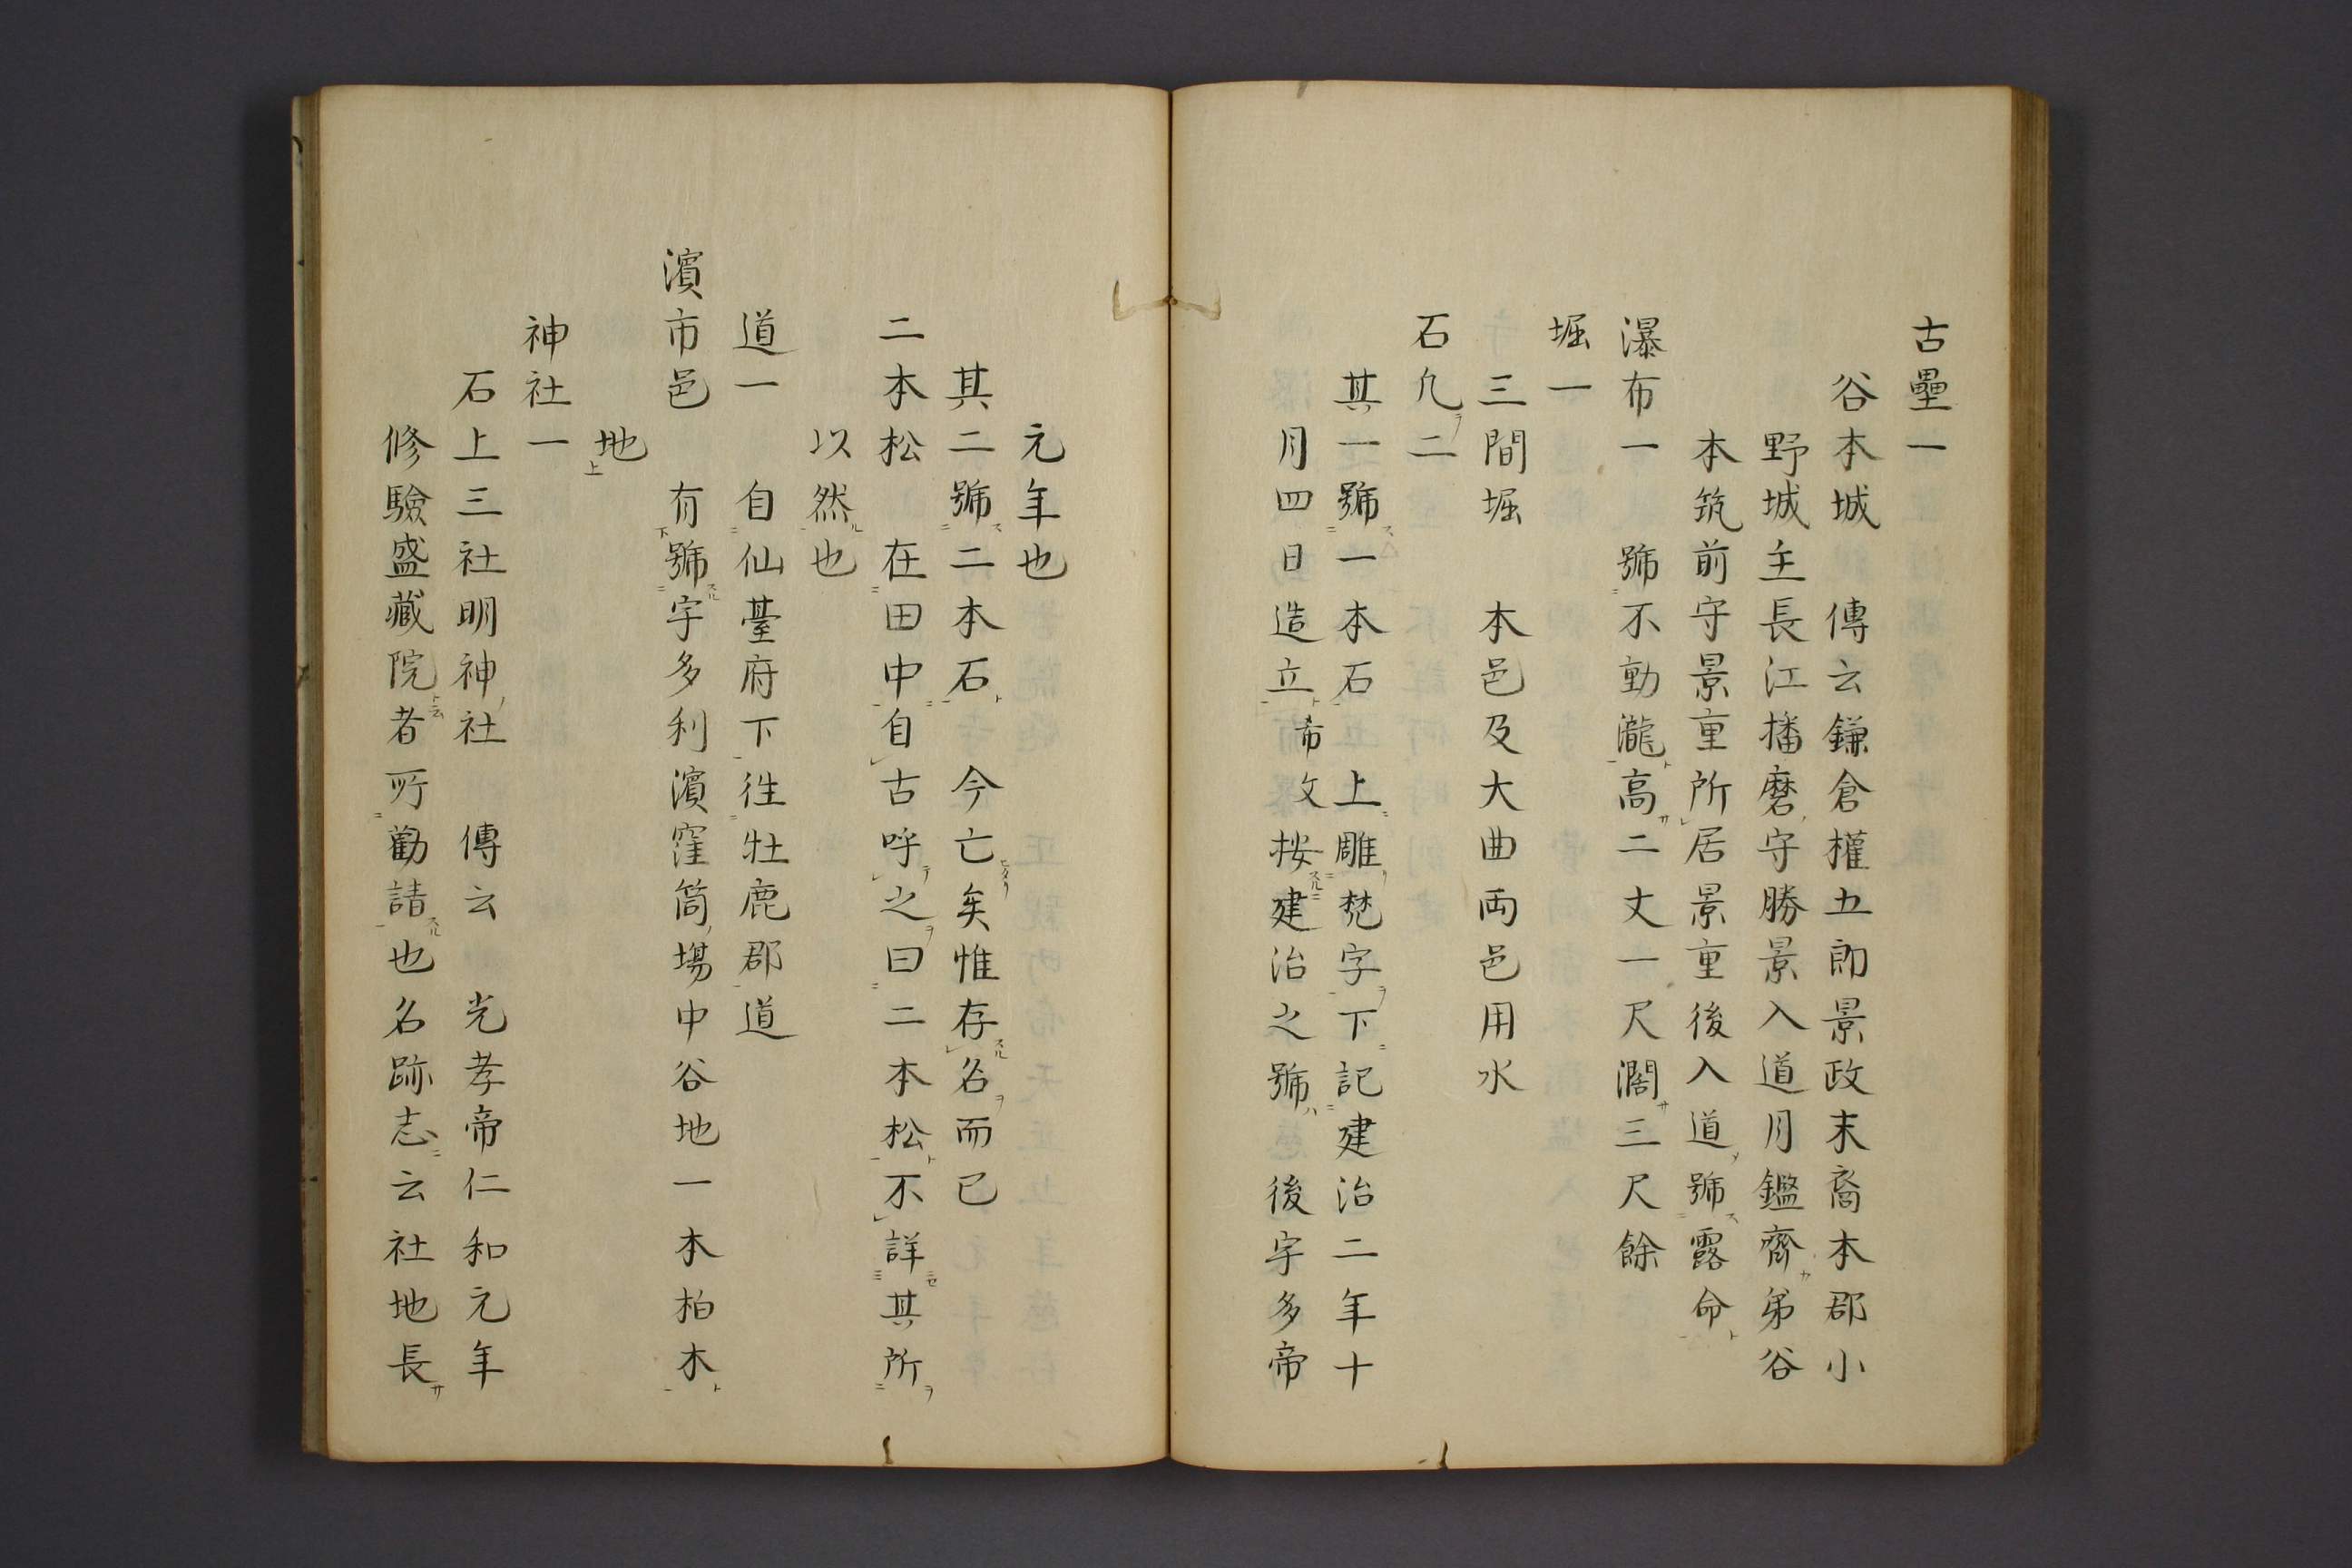 古壘一
谷本城　傳云鎌倉權五郎景政末裔本郡小
野城主長江播磨守勝景入道月鑑齊弟谷
本筑前守景重所居景重後入道號露命
瀑布一　號不動瀧高二丈一尺濶三尺餘
堀一
三間堀　本邑及大曲両邑用水
石凢二
其一號一本石　上雕梵字下記建治二年十
月四日造立
按建治之號　後宇多帝
元年也
其二號二本石　今亡矣惟存名而已
二本松　在田中自古呼之曰二本松不詳其所
以然也
道一　自仙臺府下徃牡鹿郡道
濱市邑　有號宇多利濱窪筒場中谷地一本柏木
地
神社一
石上三社明神社　傳云　光孝帝仁和元年
修驗盛藏院者所勸請也名跡志云社地長